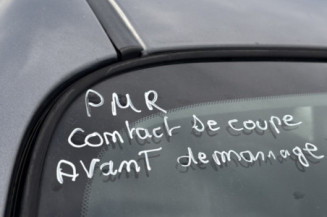 PMR
Contact se coupe
AVANT demarrage